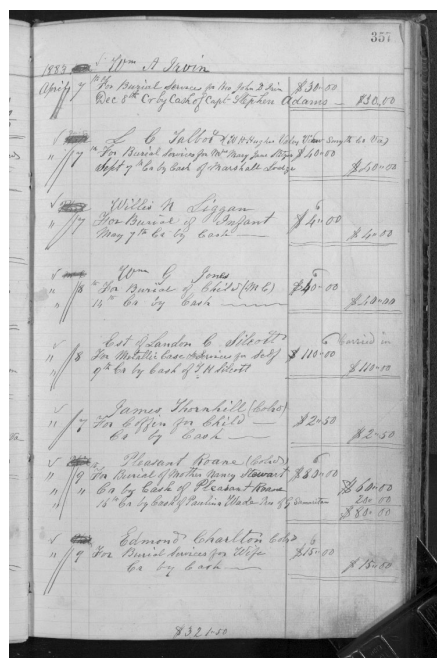 357
1883 Wm A Irvin
April 7 For Burial Services for $30-00
Dec 5th Cr by Cash of Capt Stephen Adams — $30.00
L C Talbot
" 7 For Burial Services for Mrs Mary Jane $40-00
Sept 7th Cr by Cash of Marshall Lodge $40-00
Willis N Liggan
" 7 For Burial of Infant $4-00
May 7th Cr by Cash — $4-00
Wm G Jones
" 8 For Burial of Child $40-00
14th Cr by Cash — $40-00
Est of Landon C. Silcott Carried in
" 8 For Metallic Case & Services for Self $110-00
9th Cr by Cash of T H Silcott $110-00
James Thornhill (Cold)
" 7 For Coffin for Child — $2-50
Cr by Cash — $2-50
Pleasant Roane (Cold)
" 9 For Burial of Mother Nancy Stewart $80-00
" " Cr by Cash of Pleasant Roane $60-00
16th Cr by Cash of Pauline Samaritan 20-00
$80-00
Edmond Charlton Cold
" 9 For Burial Services for Wife $15-00
Cr by Cash — $15-00
$321-50